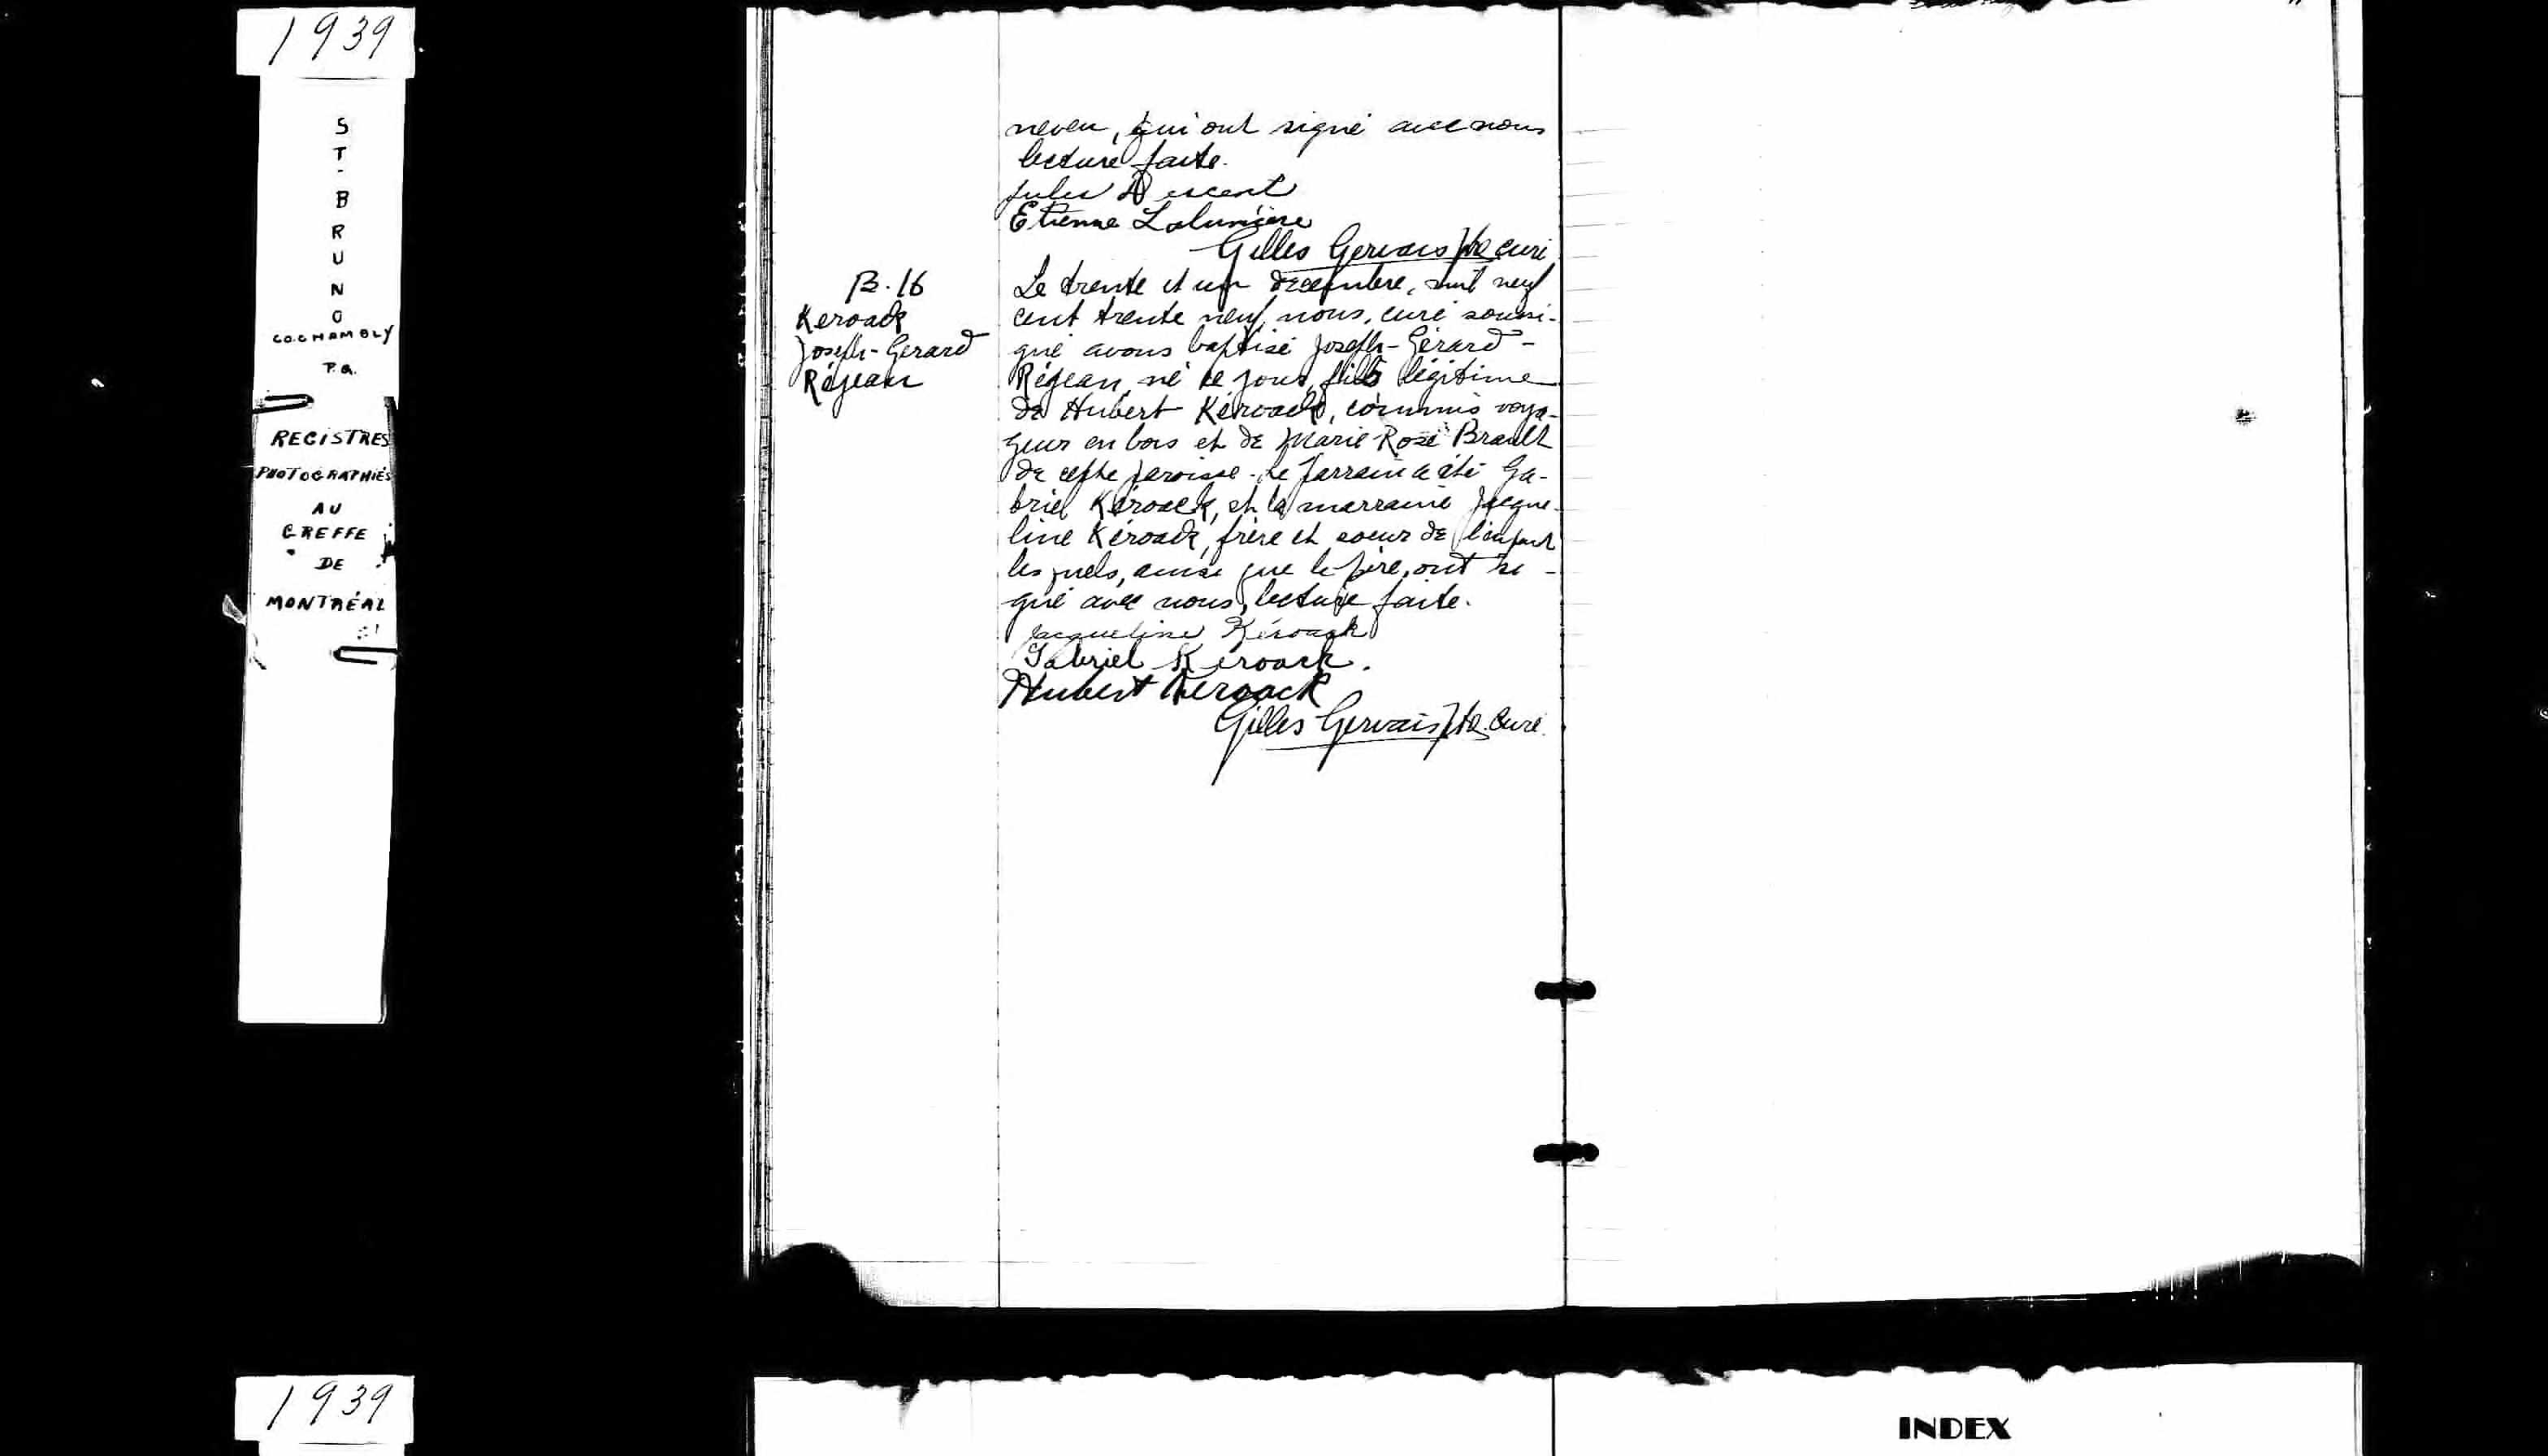 1939
ST-BRUNO
CO. CHAMBLY
P.Q.
REGISTRES
PHOTOGRAPHIÉS
AU
GREFFE
DE
MONTRÉAL
neveu, qui ont signé avec nous
lecture faite.
Jules
Etienne Lalumière
Gilles Gervais ptre curé
B. 16
Keroack
Joseph-Gerard
Réjean
Le trente et un decembre, mil neuf
cent trente neuf, nous, curé soussi-
gné avons baptisé Joseph-Gérard-
Réjean, né ce jour, fils légitime
de Hubert Kéroack, commis voya-
geur en bois et de Marie-Rose Brault
de cette paroisse. Le parrain a été Ga-
briel Kéroack, et la marraine Jacque-
line Kéroack, frère et soeur de l'enfant
lesquels, ainsi que le père, ont si-
gné avec nous, lecture faite.
Jacqueline Kéroack
Gabriel Keroack.
Hubert Keroack
Gilles Gervais ptre. curé.
1939
INDEX